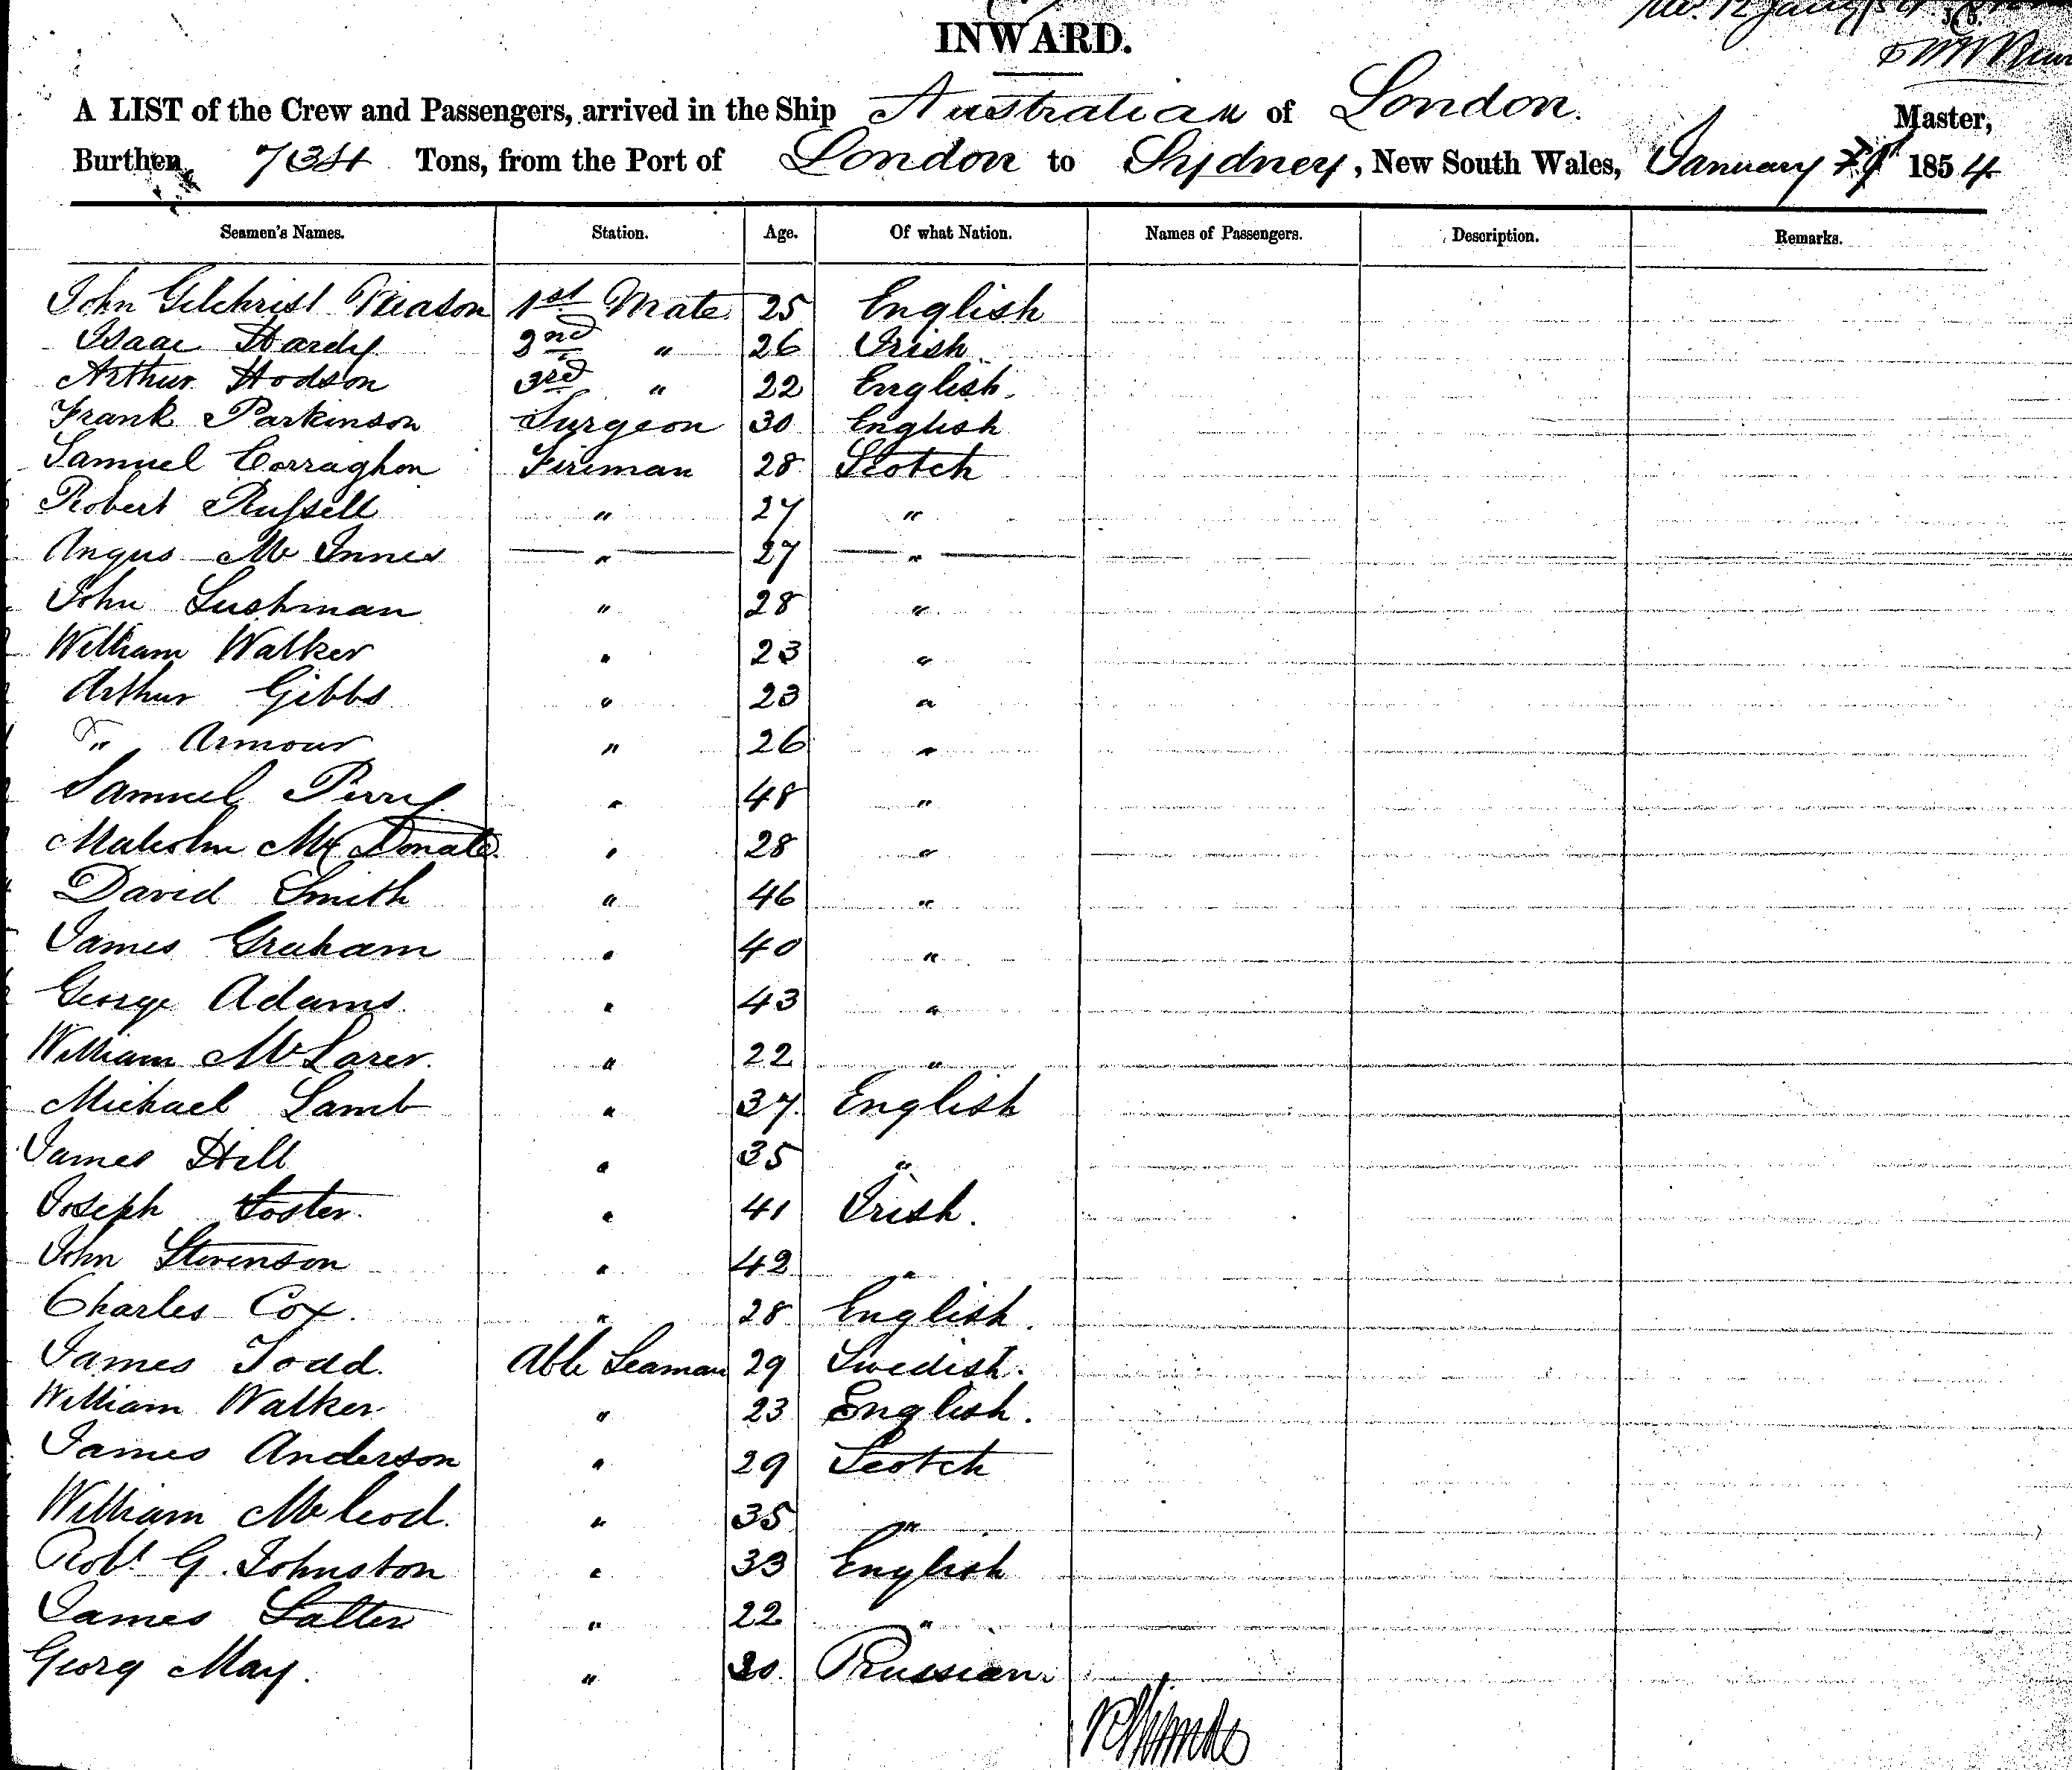 INWARD.
A LIST of the Crew and Passengers, arrived in the Ship Australian of London. Master,
Burthen 734 Tons, from the Port of London to Sydney, New South Wales, January 1854
Seamen's Names. Station. Age. Of what Nation. Names of Passengers. Description. Remarks.
John Gilchrist 1st Mate 25 English
Isaac Hardy 2nd " 26 Irish
Arthur Hodson 3rd " 22 English.
Frank Parkinson Surgeon 30 English
Samuel Corraghon Fireman 28 Scotch
Robert Russell " 27 "
Angus Mc Innes " 27 "
John Lushman " 28 "
William Walker " 23 "
Arthur Gibbs " 23 "
" Armour " 26 "
Samuel Perry " 48 "
Malcolm Mc Donald " 28 "
David Smith " 46 "
James Graham " 40 "
George Adams " 43 "
William Mc Laren " 22 "
Michael Lamb " 37 English
James Hill " 35 "
Joseph Foster " 41 Irish.
John Stevenson " 42 "
Charles Cox. " 28 English.
James Todd. Able Seaman 29 Swedish.
William Walker " 23 English.
James Anderson " 29 Scotch
William Mc Leod. " 35 "
Robt G. Johnston " 33 English
James Salter " 22 "
Georg May. " Prussian.